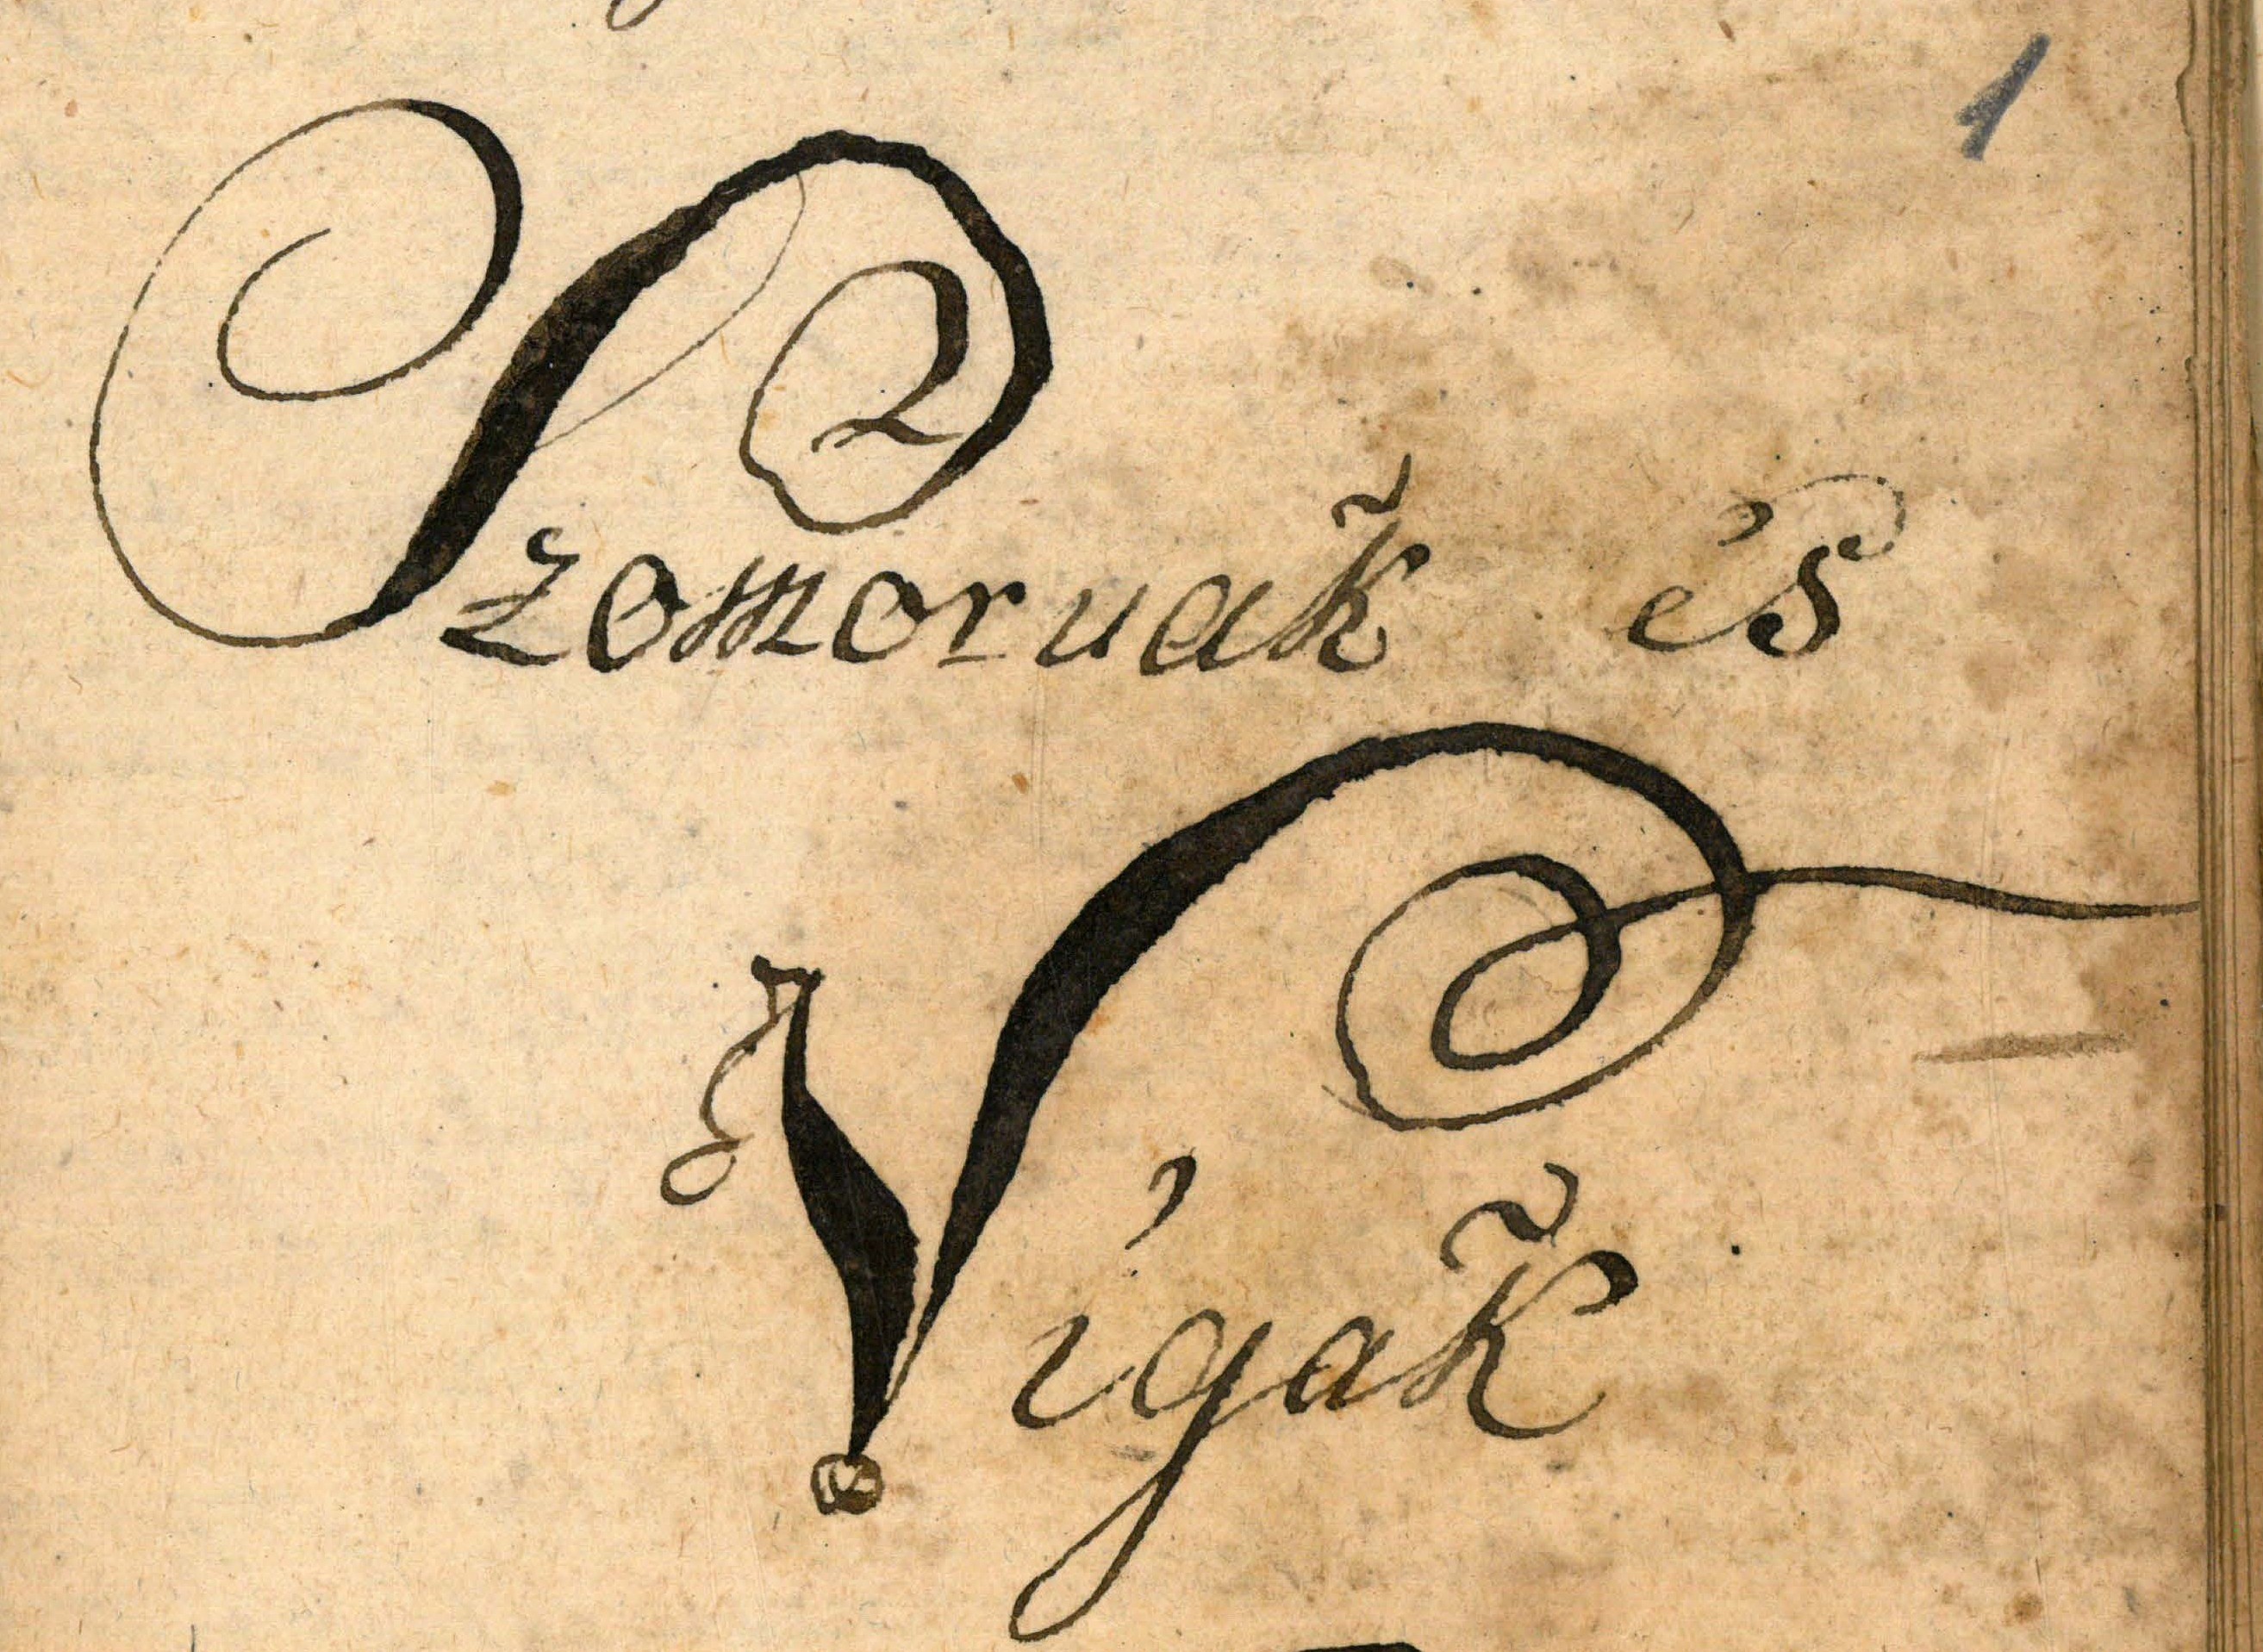 1
Szomoruak és
Vígak